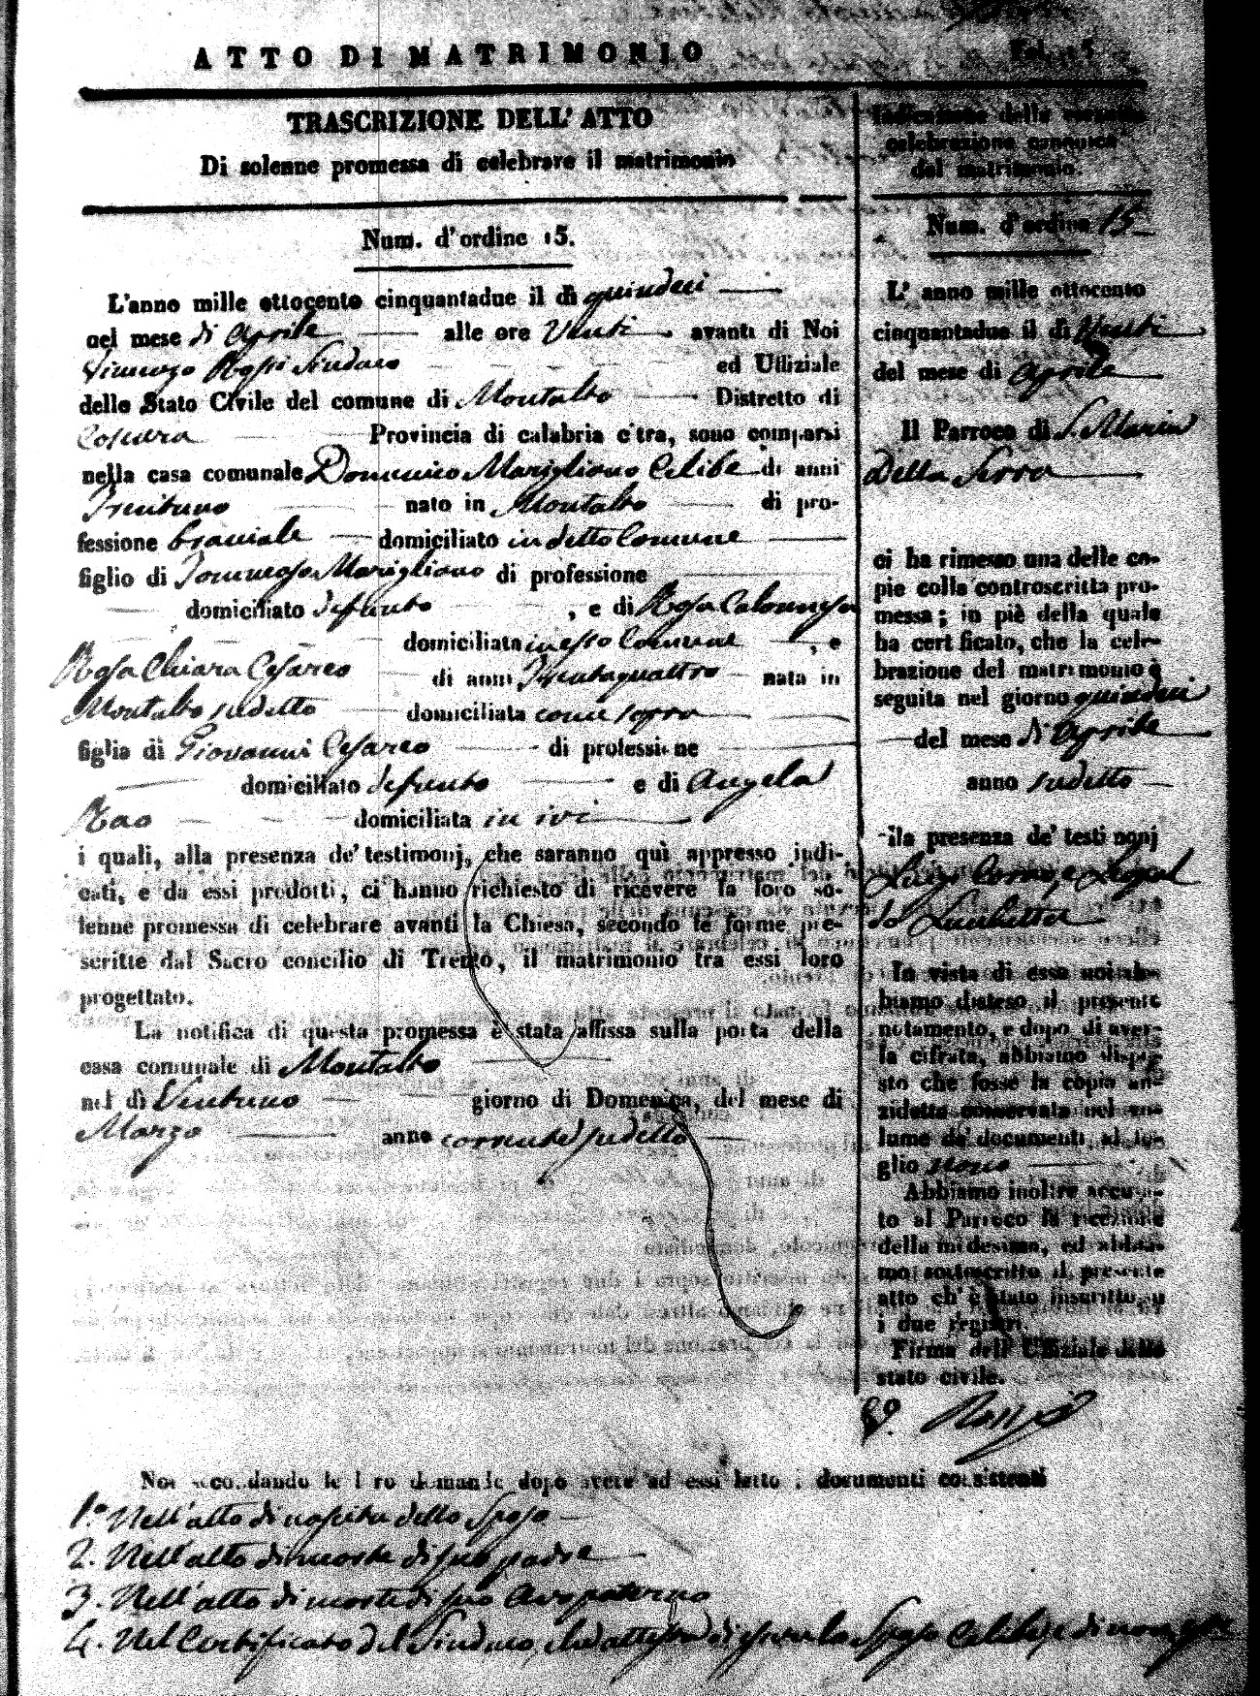 ATTO DI MATRIMONIO
TRASCRIZIONE DELL' ATTO
Di solenne promessa di celebrare il matrimonio
Num. d'ordine 15.
L'anno mille ottocento cinquantadue il dì quindici
nel mese di Aprile alle ore Venti avanti di Noi
Vincenzo Rossi Sindaco ed Uffiziale
dello Stato Civile del comune di Montalto Distretto di
Cosenza Provincia di calabria citra, sono comparsi
nella casa comunale Domenico Marigliano Celibe di anni
Trentuno nato in Montalto di pro-
fessione bracciale domiciliato in detto Comune
figlio di Tommaso Marigliano di professione
domiciliato defunto , e di Rosa Calomeja
domiciliata in esso Comune , e
Rosa Chiara Cesareo di anni Trentaquattro nata in
Montalto sudetto domiciliata come sopra
figlia di Giovanni Cesareo di professione
domiciliato defunto e di Angela
Rao domiciliata in ivi
i quali, alla presenza de' testimonj, che saranno quì appresso indi-
cati, e da essi prodotti, ci hanno richiesto di ricevere la loro so-
lenne promessa di celebrare avanti la Chiesa, secondo le forme pre-
scritte dal Sacro concilio di Trento, il matrimonio tra essi loro
progettato.
La notifica di questa promessa è stata affissa sulla porta della
casa comunale di Montalto
nel dì Ventuno giorno di Domenica, del mese di
Marzo anno corrente sudetto
Indicazione della
celebrazione canonica
del matrimonio.
Num. d'ordine 15
L' anno mille ottocento
cinquantadue il dì Venti
del mese di Aprile
Il Parroco di S. Maria
Della Serra
ci ha rimesso una delle co-
pie colla controscritta pro-
messa; in piè della quale
ha certificato, che la cele-
brazione del matrimonio è
seguita nel giorno quindici
del mese di Aprile
anno sudetto
alla presenza de' testimonj
Luigi Corno, e
In vista di essa noi ab-
biamo disteso il presente
notamento, e dopo di aver-
la cifrata, abbiamo dispo-
sto che fosse la copia an-
zidetta conservata nel vo-
lume de' documenti al fo-
glio nono
Abbiamo inoltre accusa-
to al Parroco la ricezione
della midesima, ed abbia-
mo sottoscritto il presente
atto ch' è stato inscritto su
i due registri.
Firma dell' Uffiziale dello
stato civile.
Rossi
Noi secondando le loro domande dopo avere ad essi letto i documenti consistenti
1.º Nell'atto di nascita dello Sposo
2. Nell'atto di morte di suo padre
3. Nell'atto di morte di suo avo paterno
4. Nel Certificato del Sindaco, che attesta di essere lo Sposo Celibe, e di non